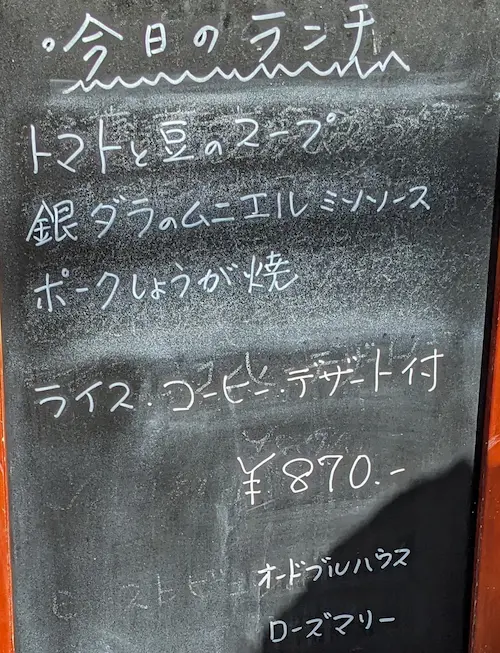 今日のランチ
トマトと豆のスープ
銀ダラのムニエルミソソース
ポークしょうが焼
ライス・コーヒー・デザート付
¥870.-
オードブルハウス
ローズマリー